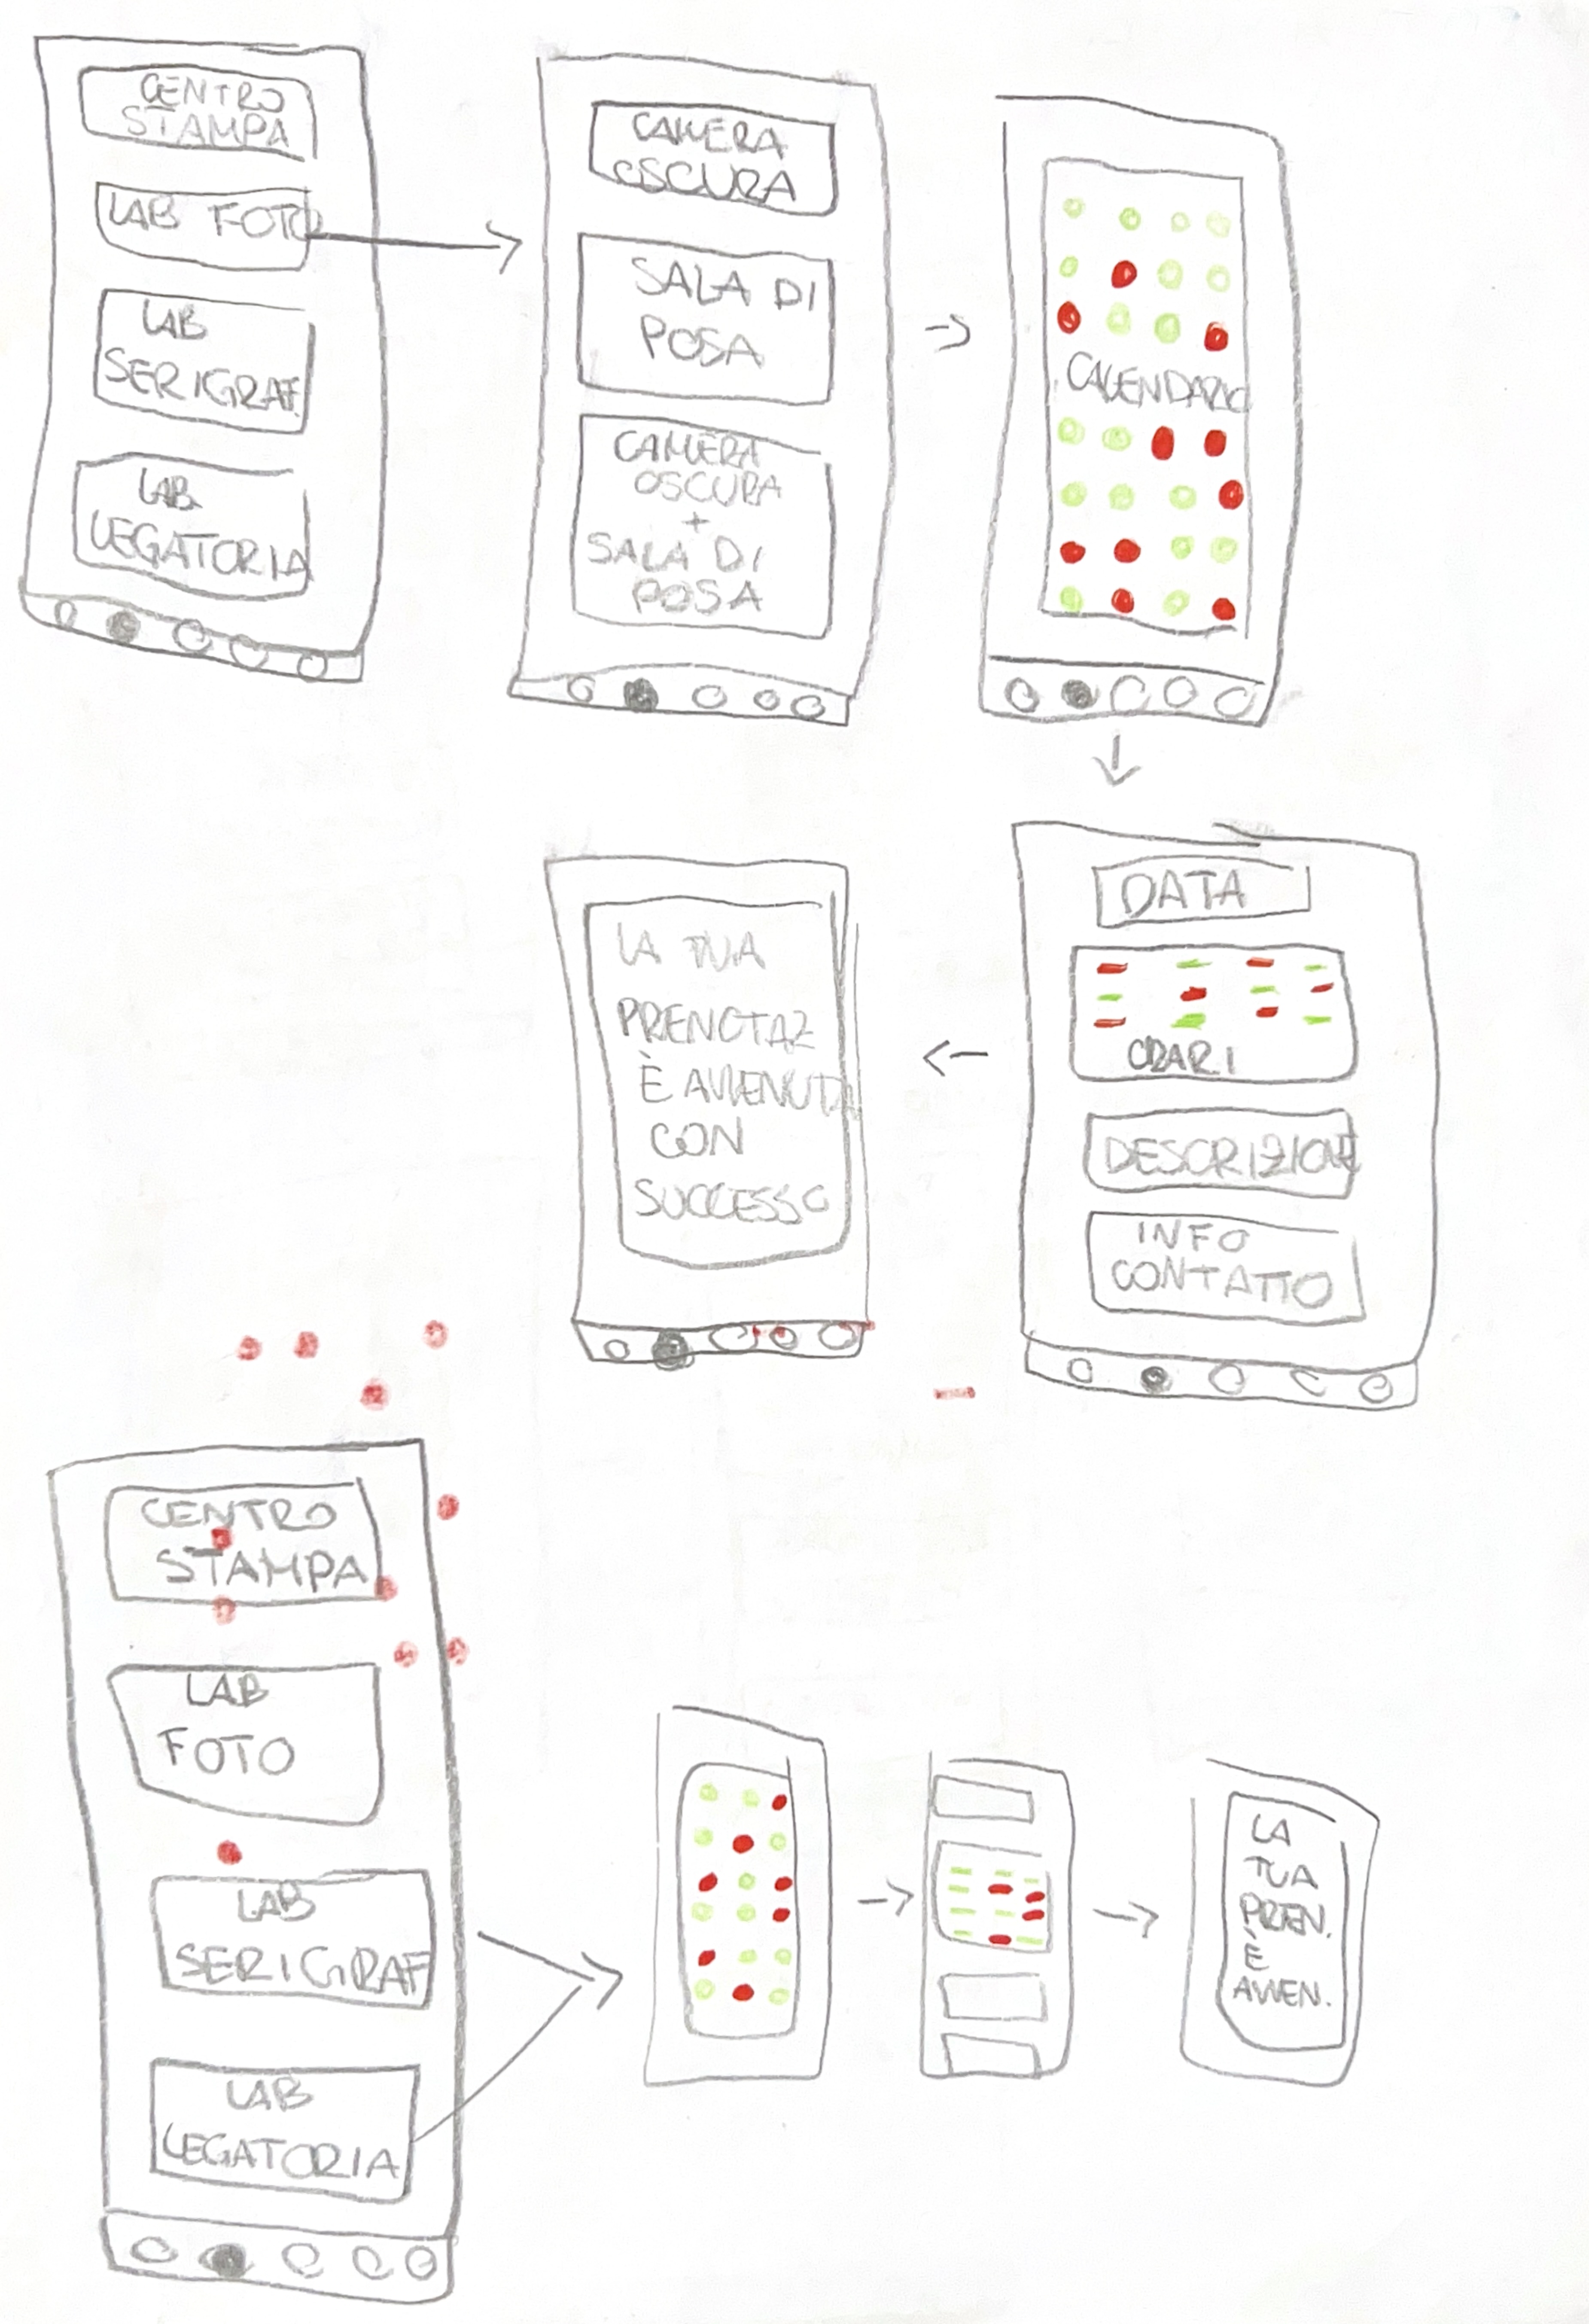 CENTRO
STAMPA
LAB FOTO
LAB
SERIGRAF.
LAB
LEGATORIA
CAMERA
OSCURA
SALA DI
POSA
CAMERA
OSCURA
+
SALA DI
POSA
CALENDARIO
DATA
ORARI
DESCRIZIONE
INFO
CONTATTO
LA TUA
PRENOTAZ
È AVVENUTA
CON
SUCCESSO
CENTRO
STAMPA
LAB
FOTO
LAB
SERIGRAF
LAB
LEGATORIA
LA
TUA
PREN.
È
AVVEN.